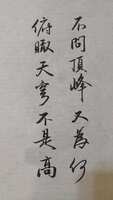 不問頂峰又為何
俯瞰天穹不是高